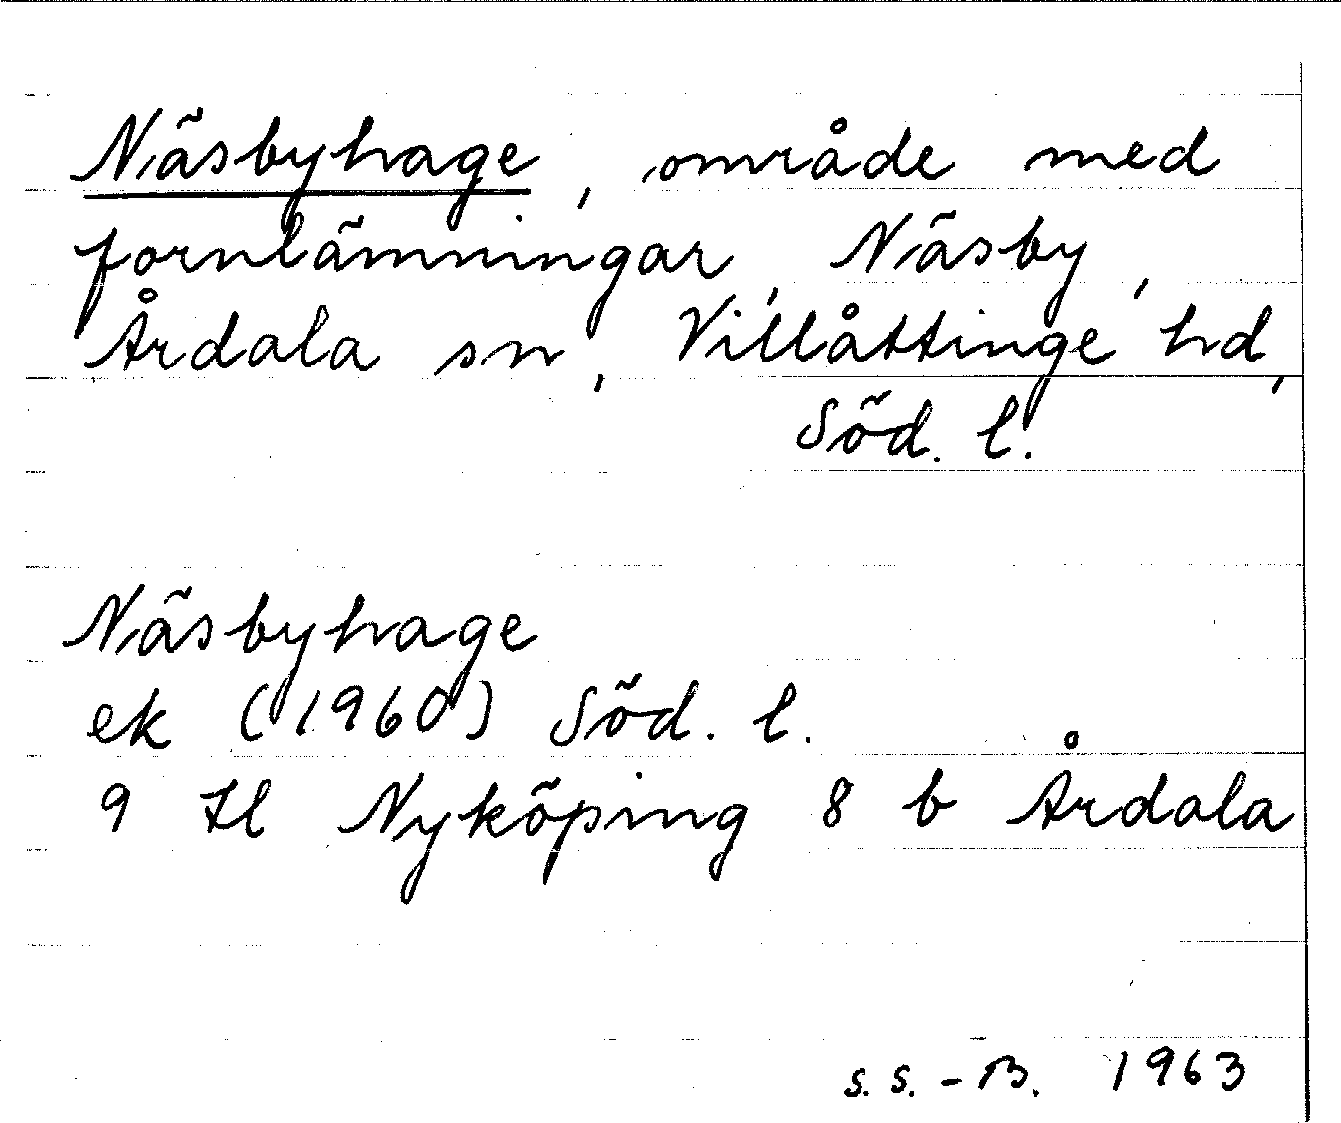 Näsbyhage, område med
fornlämningar, Näsby,
Årdala sn, Villåttinge hd,
Söd. l.
Näsbyhage
ek (1960) Söd. l.
9 H Nyköping 8 b Årdala
S. S. - B. 1963